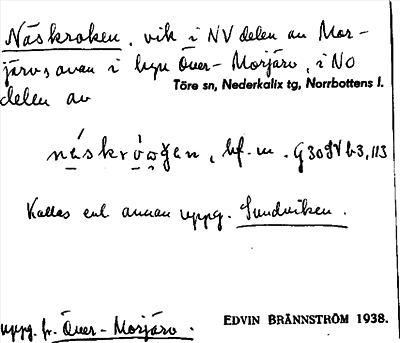 Näskroken, vik i NV delen av Mor-
järvsavan i byn Över-Morjärv, i NO
Töre sn, Nederkalix tg, Norrbottens l.
delen av
Kallas enl annan uppg. Sundviken.
uppg. fr. Över-Morjärv.
EDVIN BRÄNNSTRÖM 1938.